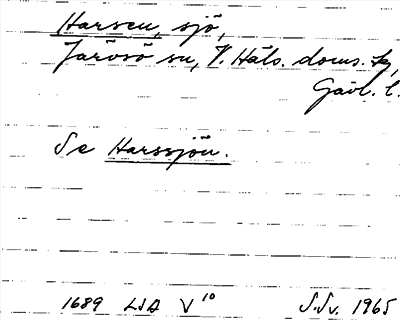 Harsen, sjö,
Järvsö sn, V. Häls. doms. tg,
Gävl. l.
Se Harssjön.
1689 LSA V¹⁰ S.Sv. 1965